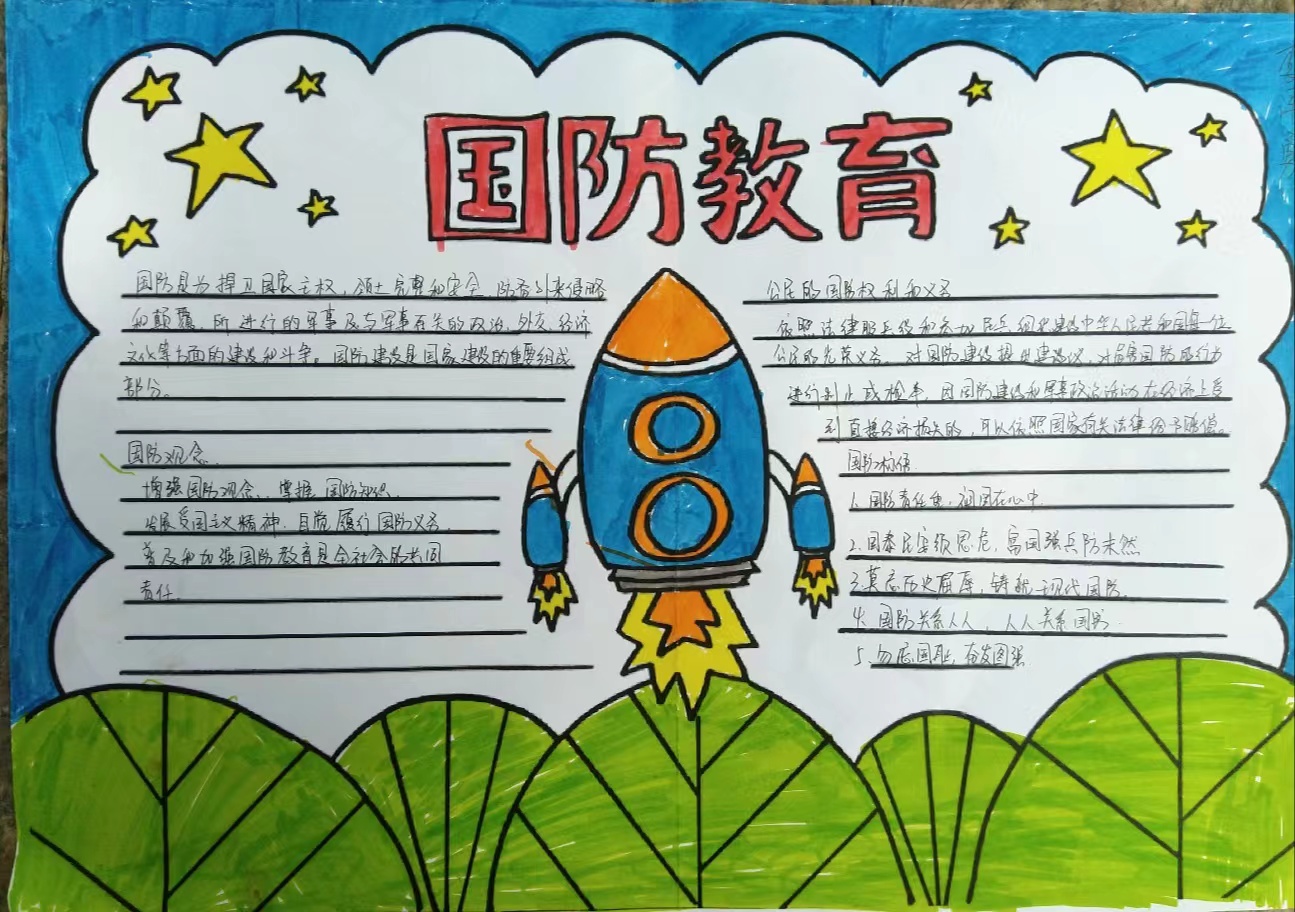 国防教育
国防是为捍卫国家主权，领土完整和安全，防备外来侵略
和颠覆，所进行的军事及与军事有关的政治，外交，经济
文化等方面的建设和斗争。国防建设是国家建设的重要组成
部分。
国防观念
增强国防观念，掌握国防知识，
发展爱国主义精神，自觉履行国防义务，
普及和加强国防教育是全社会的共同
责任
公民的国防权利和义务
依照法律服兵役和参加民兵组织建设中华人民共和国每一位
公民的光荣义务。对国防建设提出建议，对危害国防的行为
进行制止或检举，因国防建设和军事政治活动在经济上受
到直接经济损失的，可以依照国家有关法律给予赔偿。
国防标语
1、国防责任重，祖国在心中
2、国泰民安须思危，富国强兵防未然
3、莫忘历史屈辱，铸就现代国防
4、国防关系人人，人人关系国防
5、勿忘国耻，奋发图强